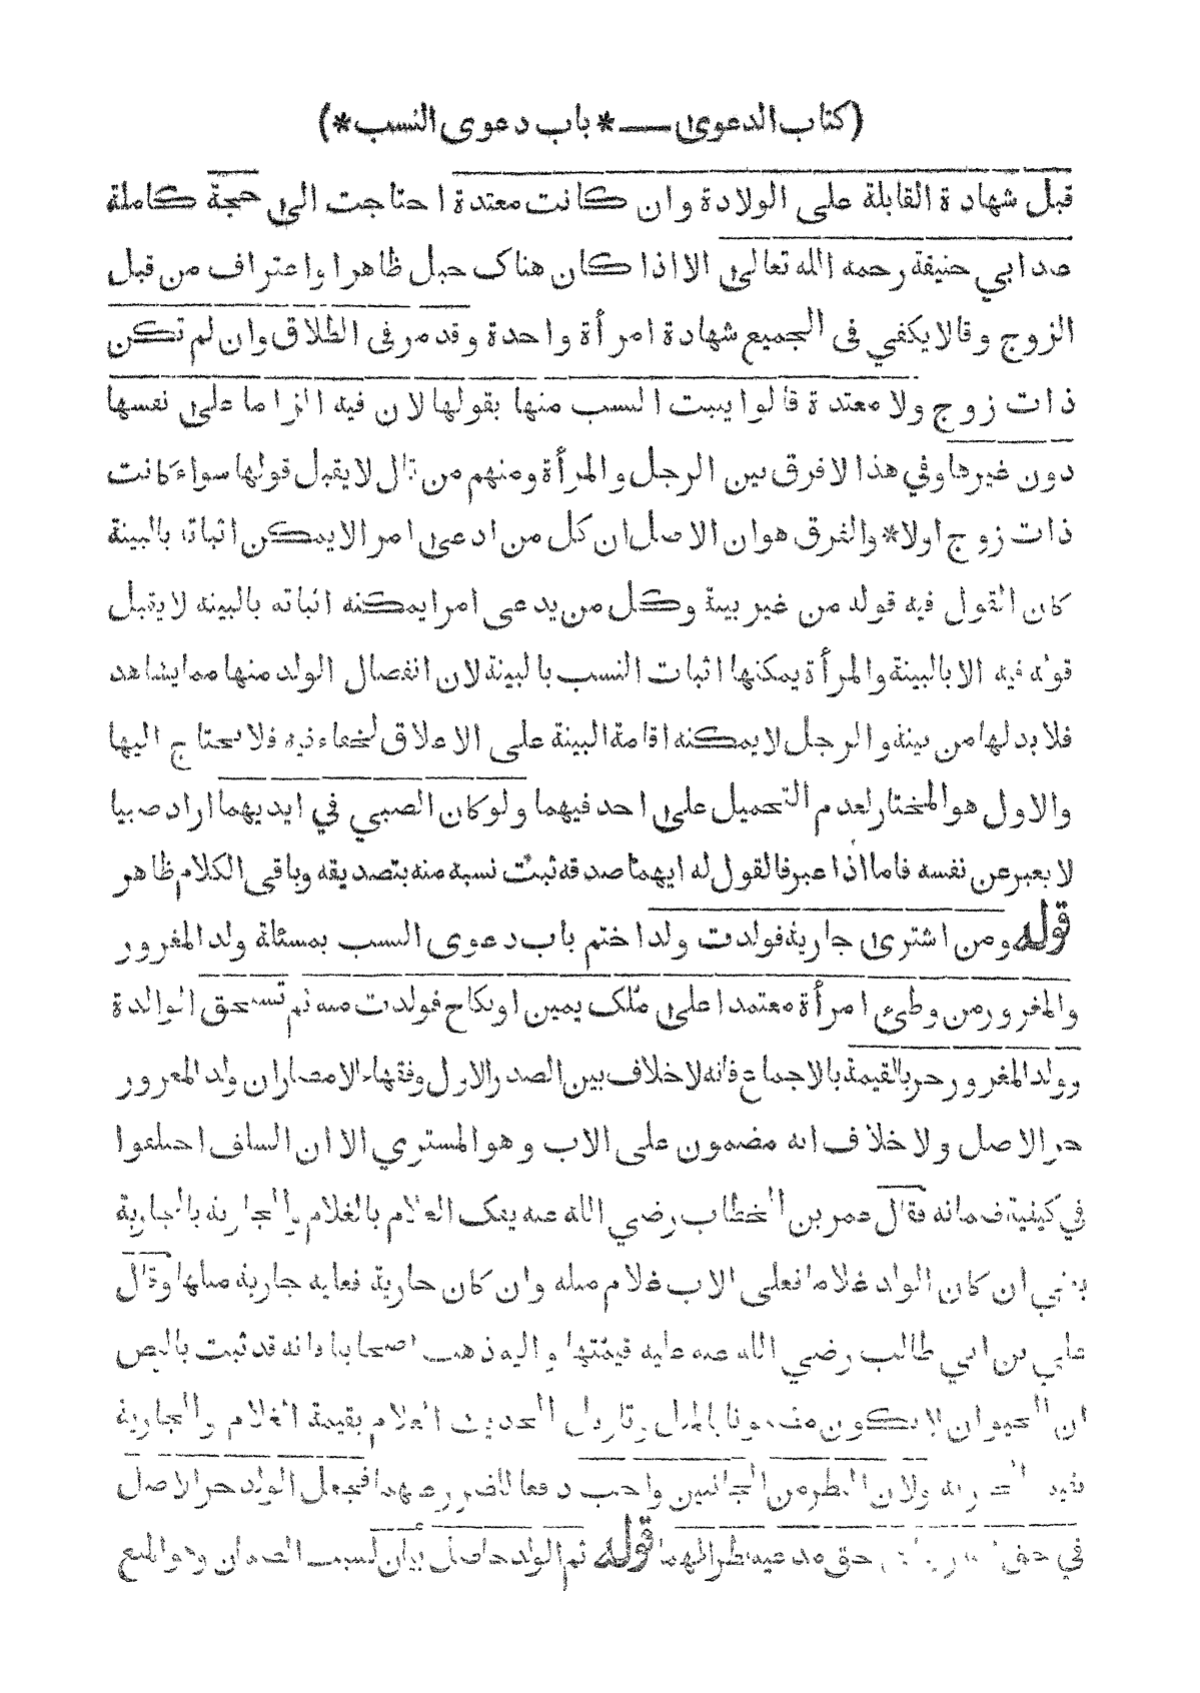 (كتاب الدعوى — * باب دعوى النسب *)
قبل شهادة القابلة على الولادة وان كانت معتدة احتاجت الى حجة كاملة
صد ابي حنيفة رحمه الله تعالى الا اذا كان هناك حبل ظاهرا واعتراف من قبل
الزوج وقالا يكفي فى الجميع شهادة امرأة واحدة وقد مر فى الطلاق وان لم تكن
ذات زوج ولا معتدة قالوا يببت النسب منها بقولها لان فيه الزاما على نفسها
دون غيرها وفي هذا لا فرق بين الرجل والمرأة ومنهم من قال لا يقبل قولها سواء كانت
ذات زوج اولا * والفرق هو ان الاصل ان كل من ادعى امر الا يمكن اثباته بالبينة
كان القول فيه قوله من غير بينة وكل من يدعى امرا يمكنه اثباته بالبينه لا يقبل
قوله فيه الا بالبينة والمرأة يمكنها اثبات النسب بالبينة لان انفصال الولد منها مما يشاهد
فلا بد لها من بينة والرجل لا يمكنه اقامة البينة على الاعلاق لخفاء فيه فلا يحتاج اليها
والاول هو المختار لعدم التحميل على احد فيهما ولو كان الصبي في ايديهما اراد صبيا
لا يعبر عن نفسه فاما اذا عبر فالقول له ايهما صدقه ثبت نسبه منه بتصديقه وباقى الكلام ظاهر
قوله ومن اشترى جارية فولدت ولدا ختم باب دعوى النسب بمسئلة ولد المغرور
والمغرور من وطئ امرأة معتمدا على ملك يمين او نكاح فولدت منه ثم تستحق الوالدة
وولد المغرور حر بالقيمة بالاجماع فانه لا خلاف بين الصدر الاول وفقهاء الامصار ان ولد المغرور
حر الاصل ولا خلاف انه مضمون على الاب وهو المستري الا ان السلف اختلفوا
في كيفية ضمانه فقال عمر بن الخطاب رضي الله عنه يفك الغلام بالغلام والجارية بالجارية
يعني ان كان الولد غلاما فعلى الاب غلام مثله وان كان جارية فعليه جارية مثلها وقال
علي بن ابي طالب رضي الله عنه عليه قيمتها واليه ذهب اصحابنا فانه قد ثبت بالنص
ان الحيوان لا يكون مضمونا بالمثل وتاويل الحديث الغلام بقيمة الغلام والجارية
بقيمة الجارية ولان النظر من الجانبين واجب دفعا للضرر عنهما فيجعل الولد حر الاصل
في حق حق مدعيه نظرا لهما قوله ثم الولد حاصل بيان لسبب الضمان وهو المنع